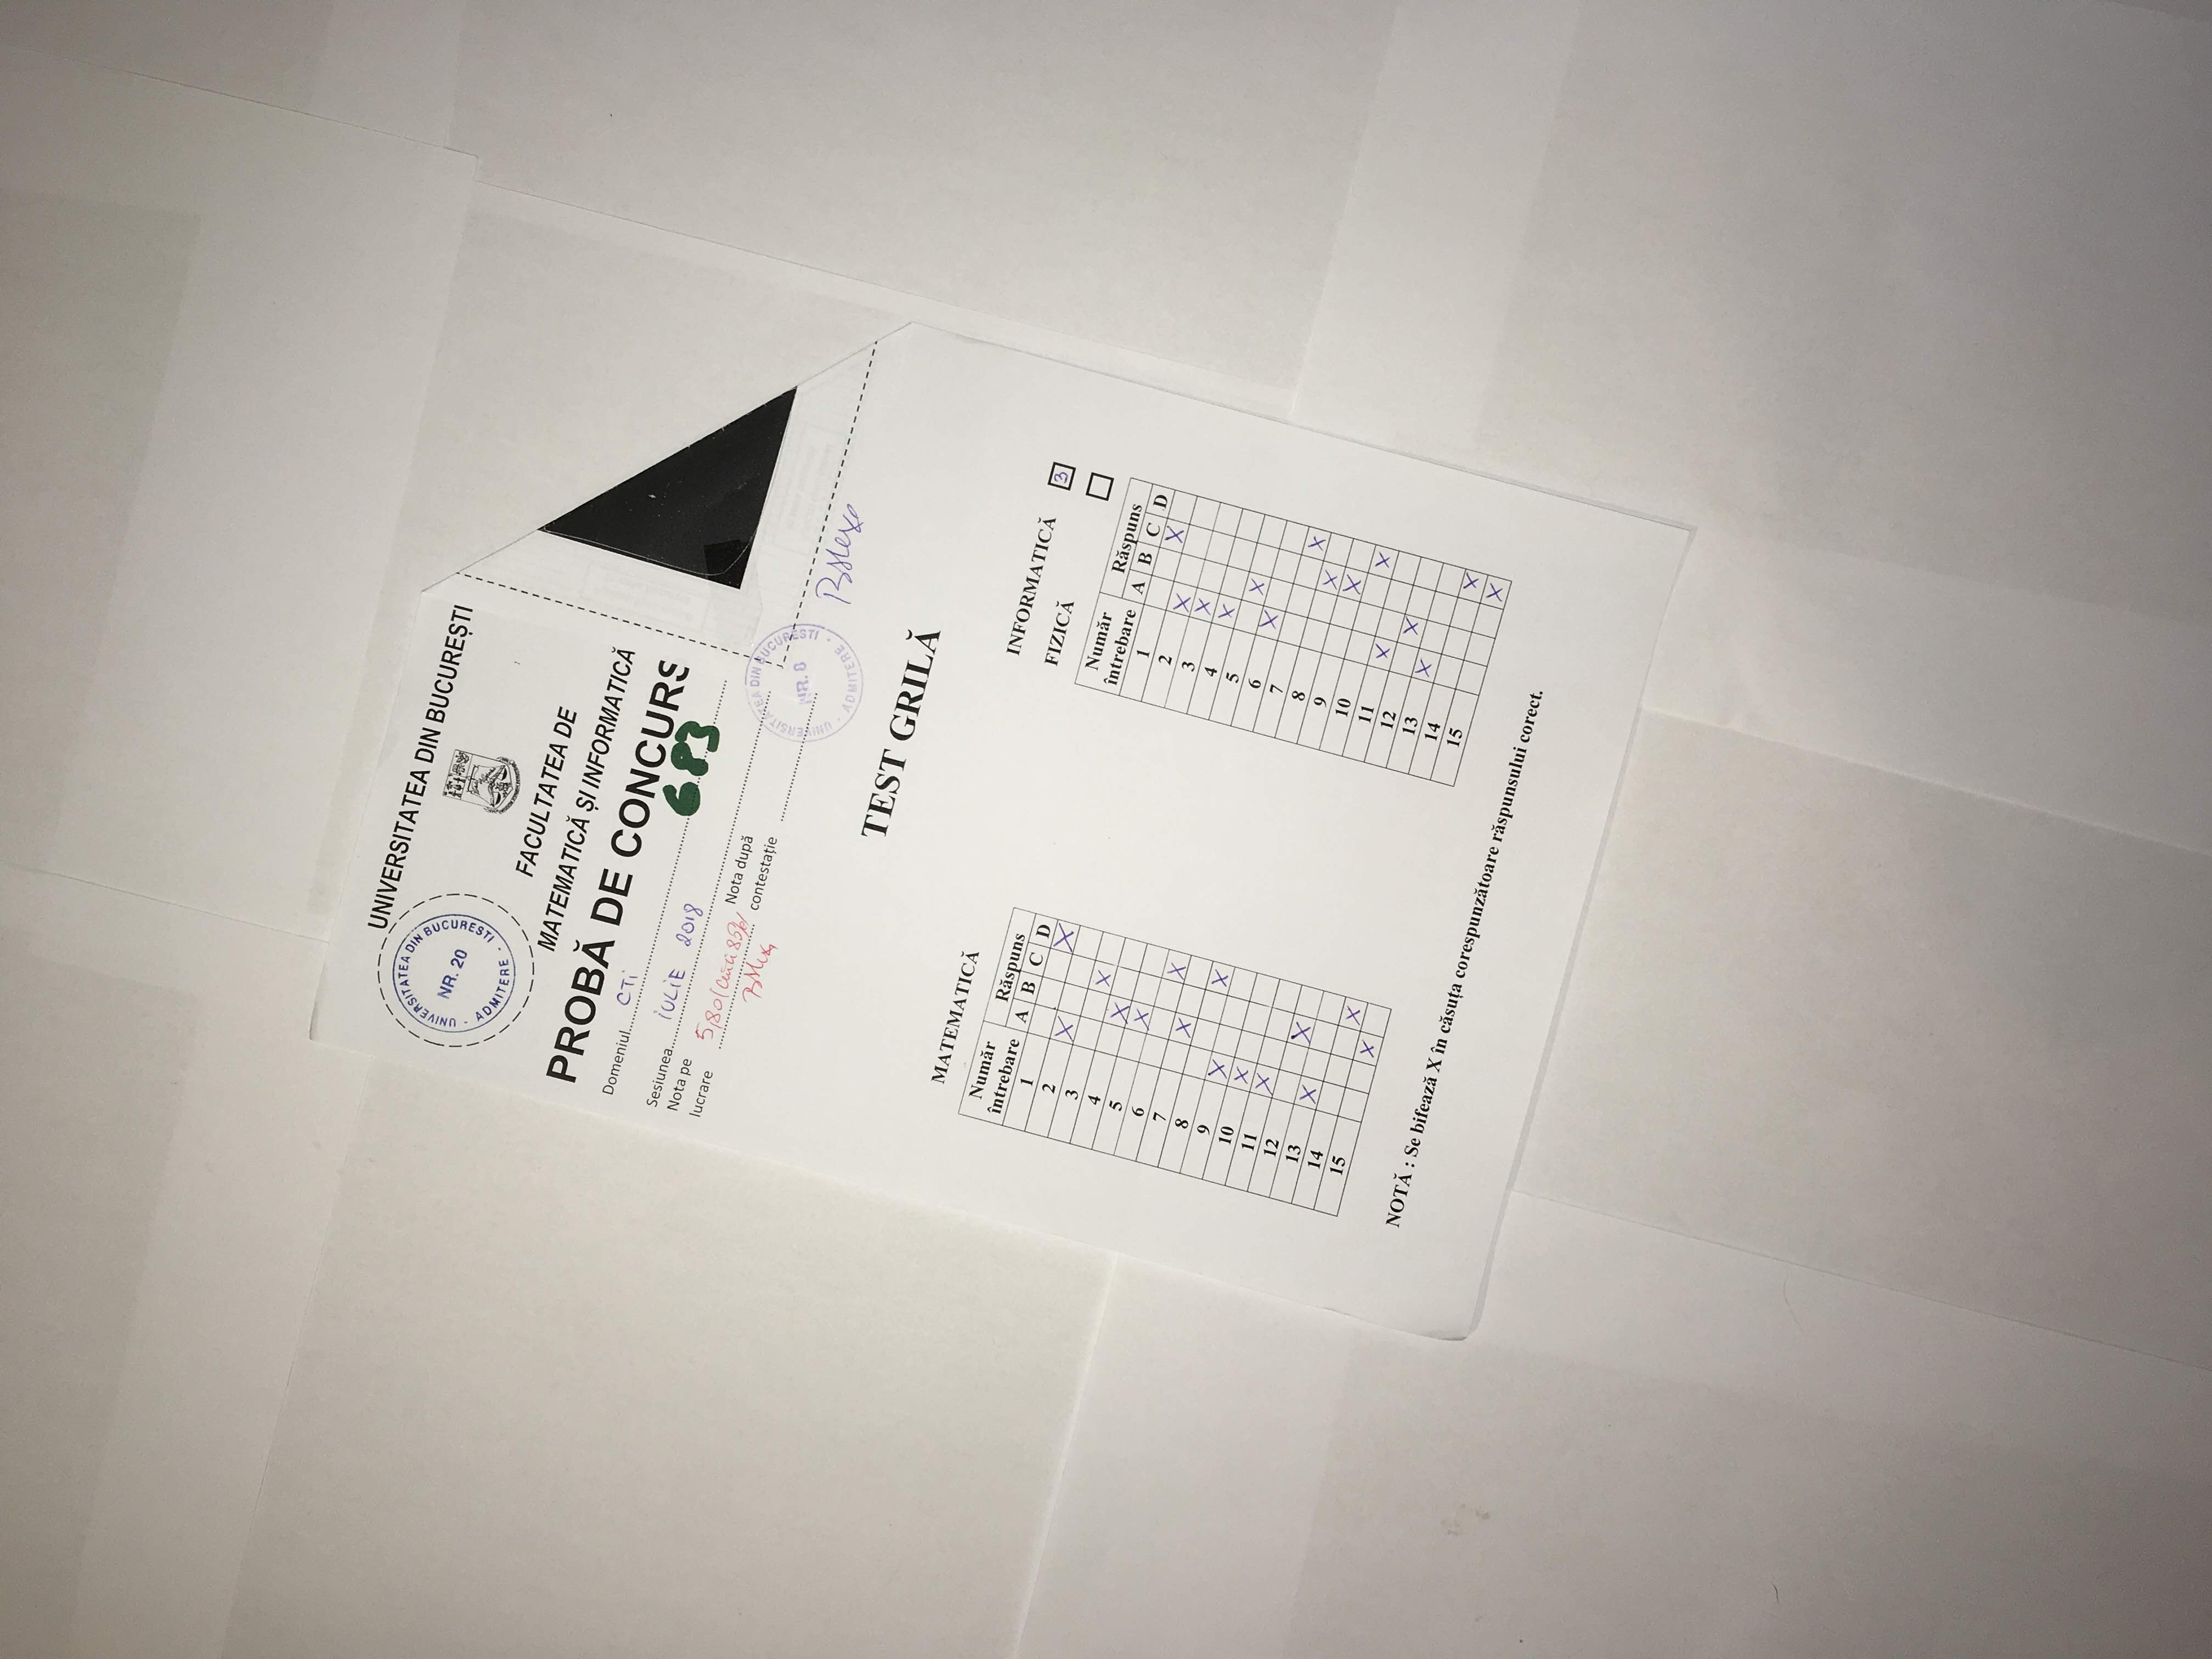 UNIVERSITATEA DIN BUCUREȘTI
UNIVERSITATEA DIN BUCURESTI
NR. 20
ADMITERE
FACULTATEA DE
MATEMATICĂ ȘI INFORMATICĂ
PROBĂ DE CONCURS
Domeniul CTi
683
Sesiunea iULiE 2018
Nota pe lucrare 5,80 (cinci 80%)
Nota după contestație
UNIVERSITATEA DIN BUCURESTI
NR. 8
ADMITERE
TEST GRILĂ
MATEMATICĂ
Număr întrebare Răspuns
A B C D
1 X
2 X
3 X
4 X
5 X
6 X
7 X
8 X
9 X
10 X
11 X
12 X
13 X
14 X
15 X
INFORMATICĂ 3
FIZICĂ
Număr întrebare Răspuns
A B C D
1 X
2 X
3 X
4 X
5 X
6 X
7 X
8 X
9 X
10 X
11 X
12 X
13 X
14 X
15 X
NOTĂ : Se bifează X în căsuța corespunzătoare răspunsului corect.